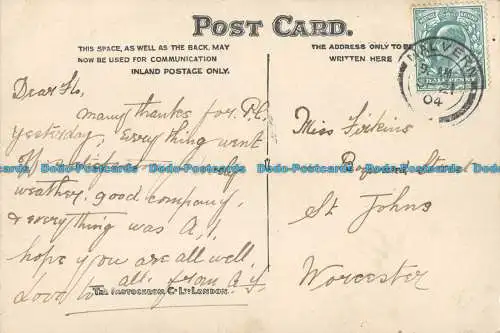 POST CARD.
THIS SPACE, AS WELL AS THE BACK, MAY
NOW BE USED FOR COMMUNICATION
INLAND POSTAGE ONLY.
THE ADDRESS ONLY TO BE
WRITTEN HERE
MALVERN
04
Dear Flo,
Many thanks for P.C.
yesterday, Everything went
off
weather, good company,
& everything was A.1.
hope you are all well
Love to all. from
THE PHOTOCHROM Co. LTD. LONDON
Miss
St Johns
Worcester
Dodo-Postcards Dodo-Postcards Dodo-Postcards Dodo-Postcards